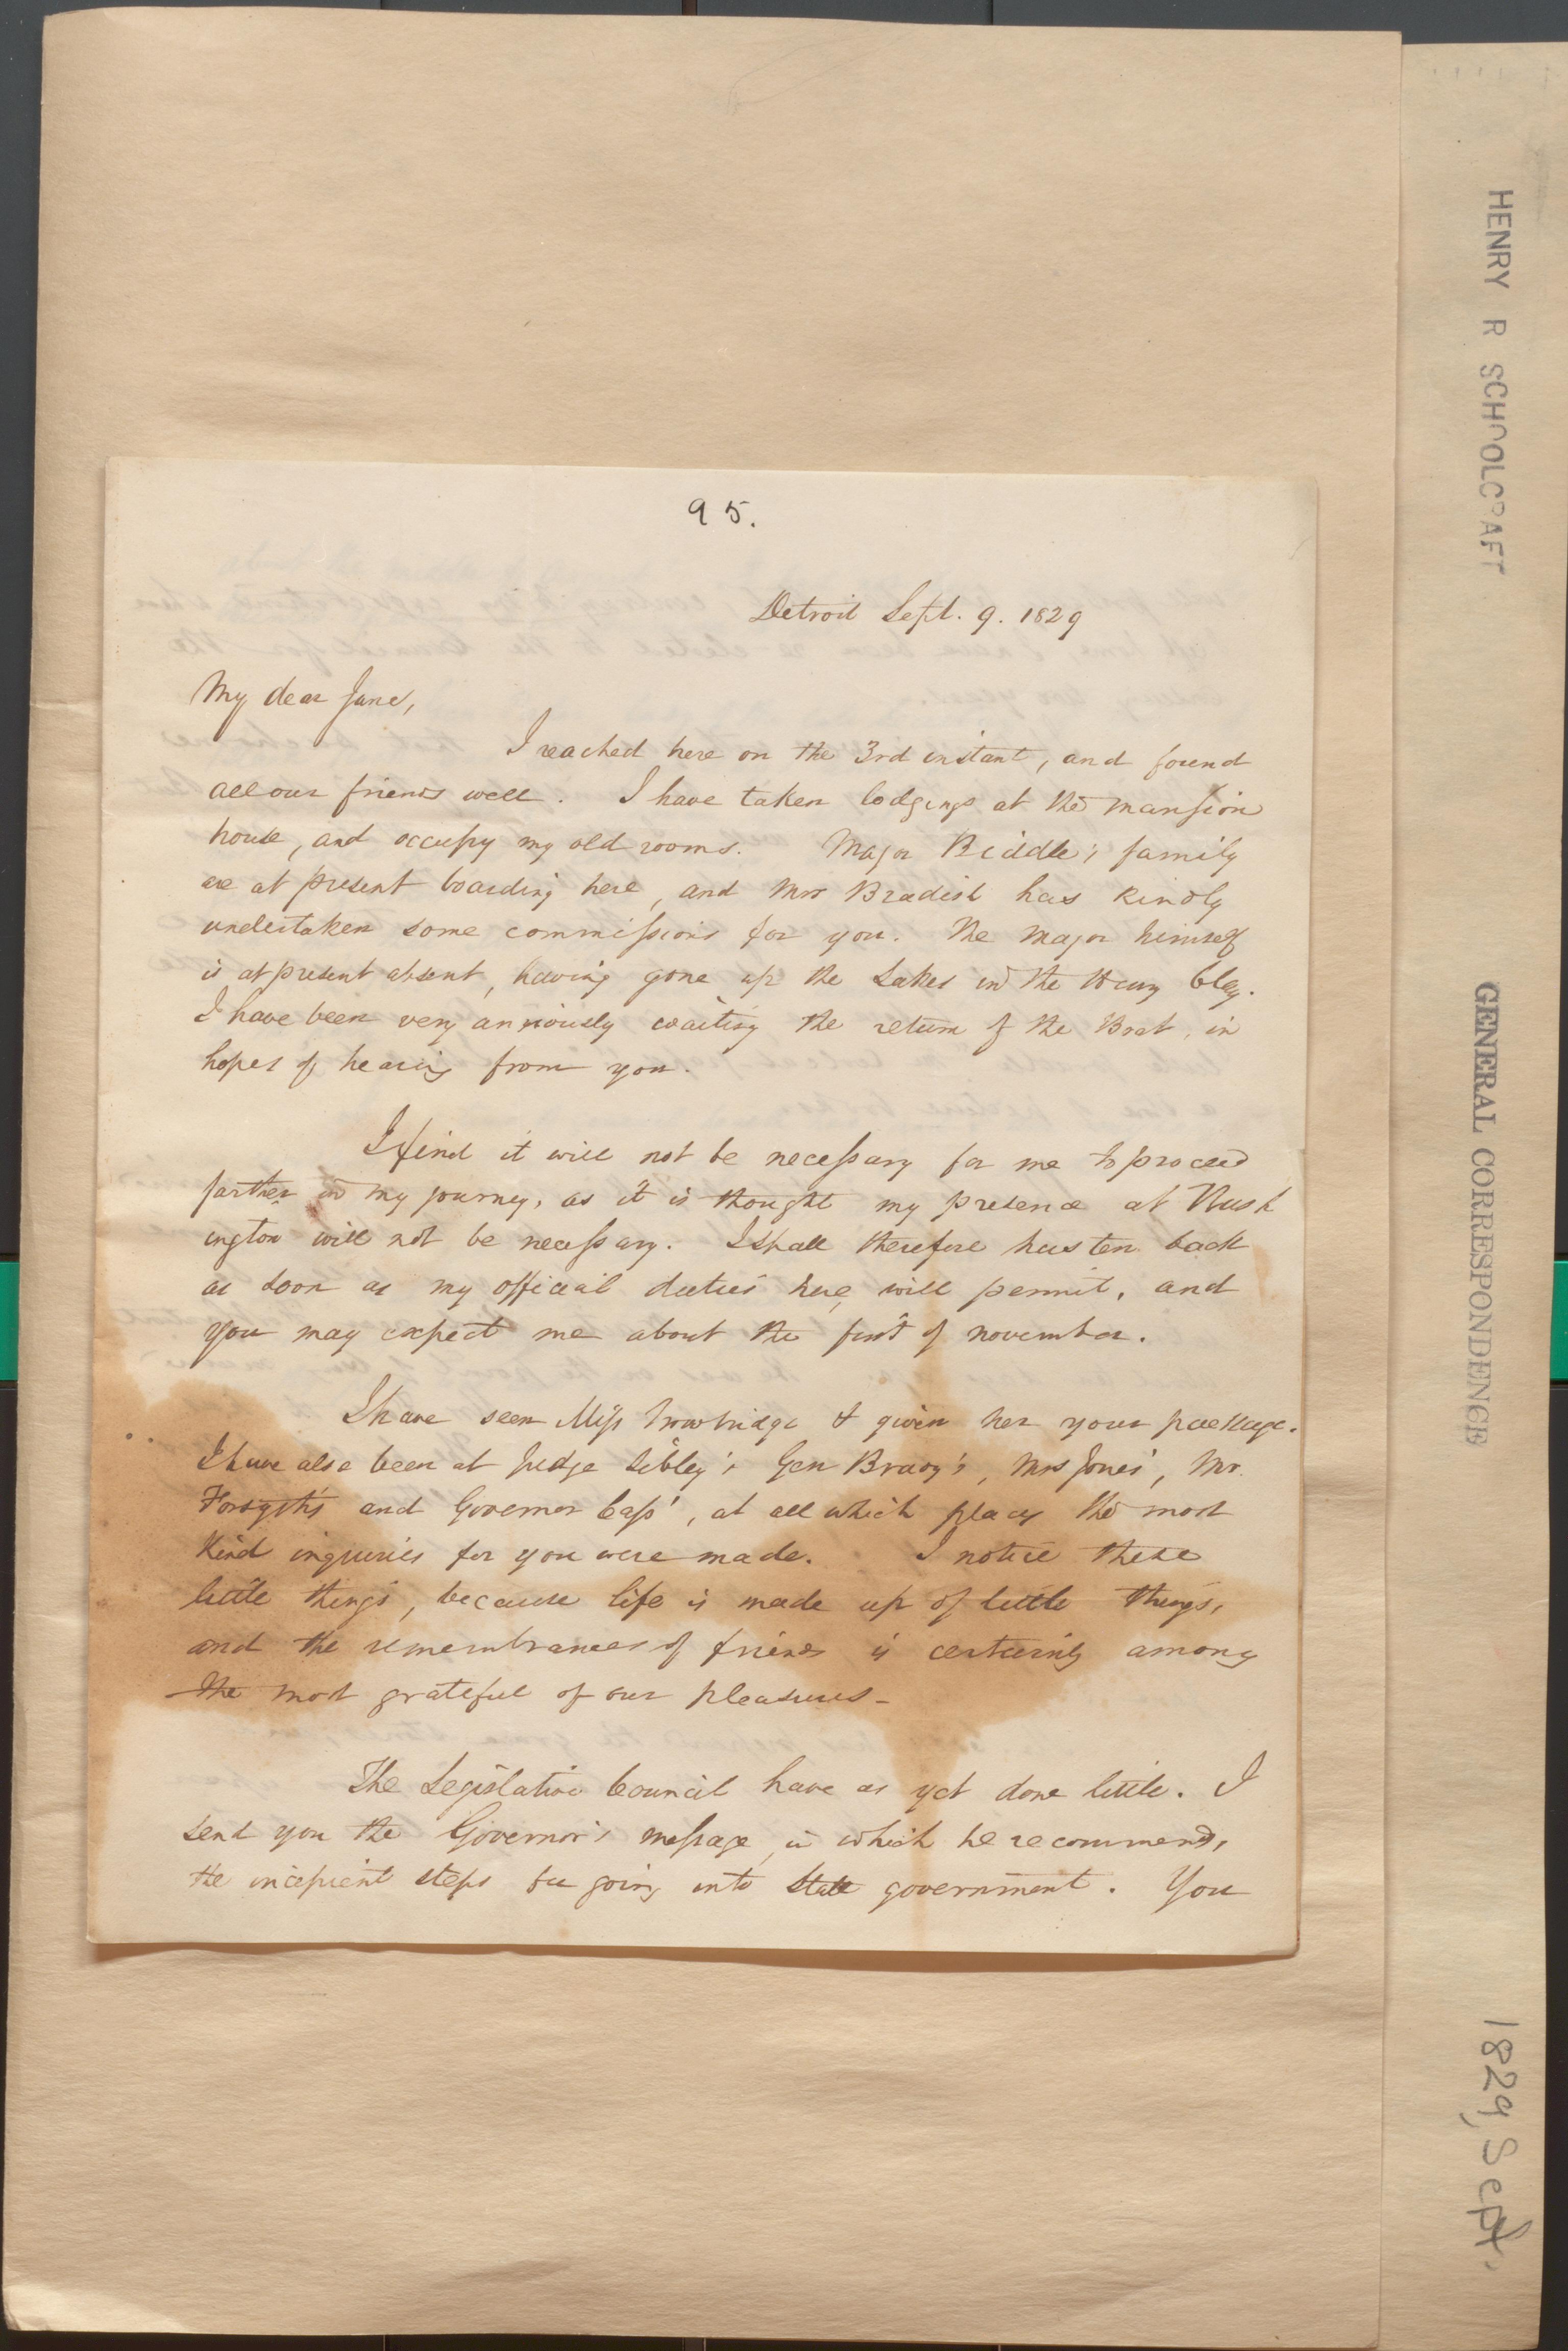 95.
Detroit Sept. 9. 1829
My dear Jane,
I reached here on the 3rd instant, and found
all our friends well. I have taken lodgings at the mansion
house, and occupy my old rooms. Major Biddle's family
are at present boarding here, and Mrs Bradish has kindly
undertaken some commissions for you. The Major himself
is at present absent, having gone up the Lakes in the Henry Clay.
I have been very anxiously waiting the return of the Boat, in
hopes of hearing from you.
I find it will not be necessary for me to proceed
farther in my journey, as it is thought my presence at Wash
ington will not be necessary. I shall therefore hasten back
as soon as my official duties here will permit, and
you may expect me about the first of november.
I have seen Miss Trowbridge & given her your package.
I have also been at Judge Sibley's Gen Brady's, Mrs Jones', Mr.
Forsyth's and Governor Cass', at all which places the most
kind inquiries for you were made. I notice these
little things, because life is made up of little things,
and the remembrances of friends is certainly among
the most grateful of our pleasures-
The Legislative Council have as yet done little. I
send you the Governor's message, in which he recommends,
the incipient steps for going into State government. You
HENRY R SCHOOLCRAFT
GENERAL CORRESPONDENCE
1829, Sept.